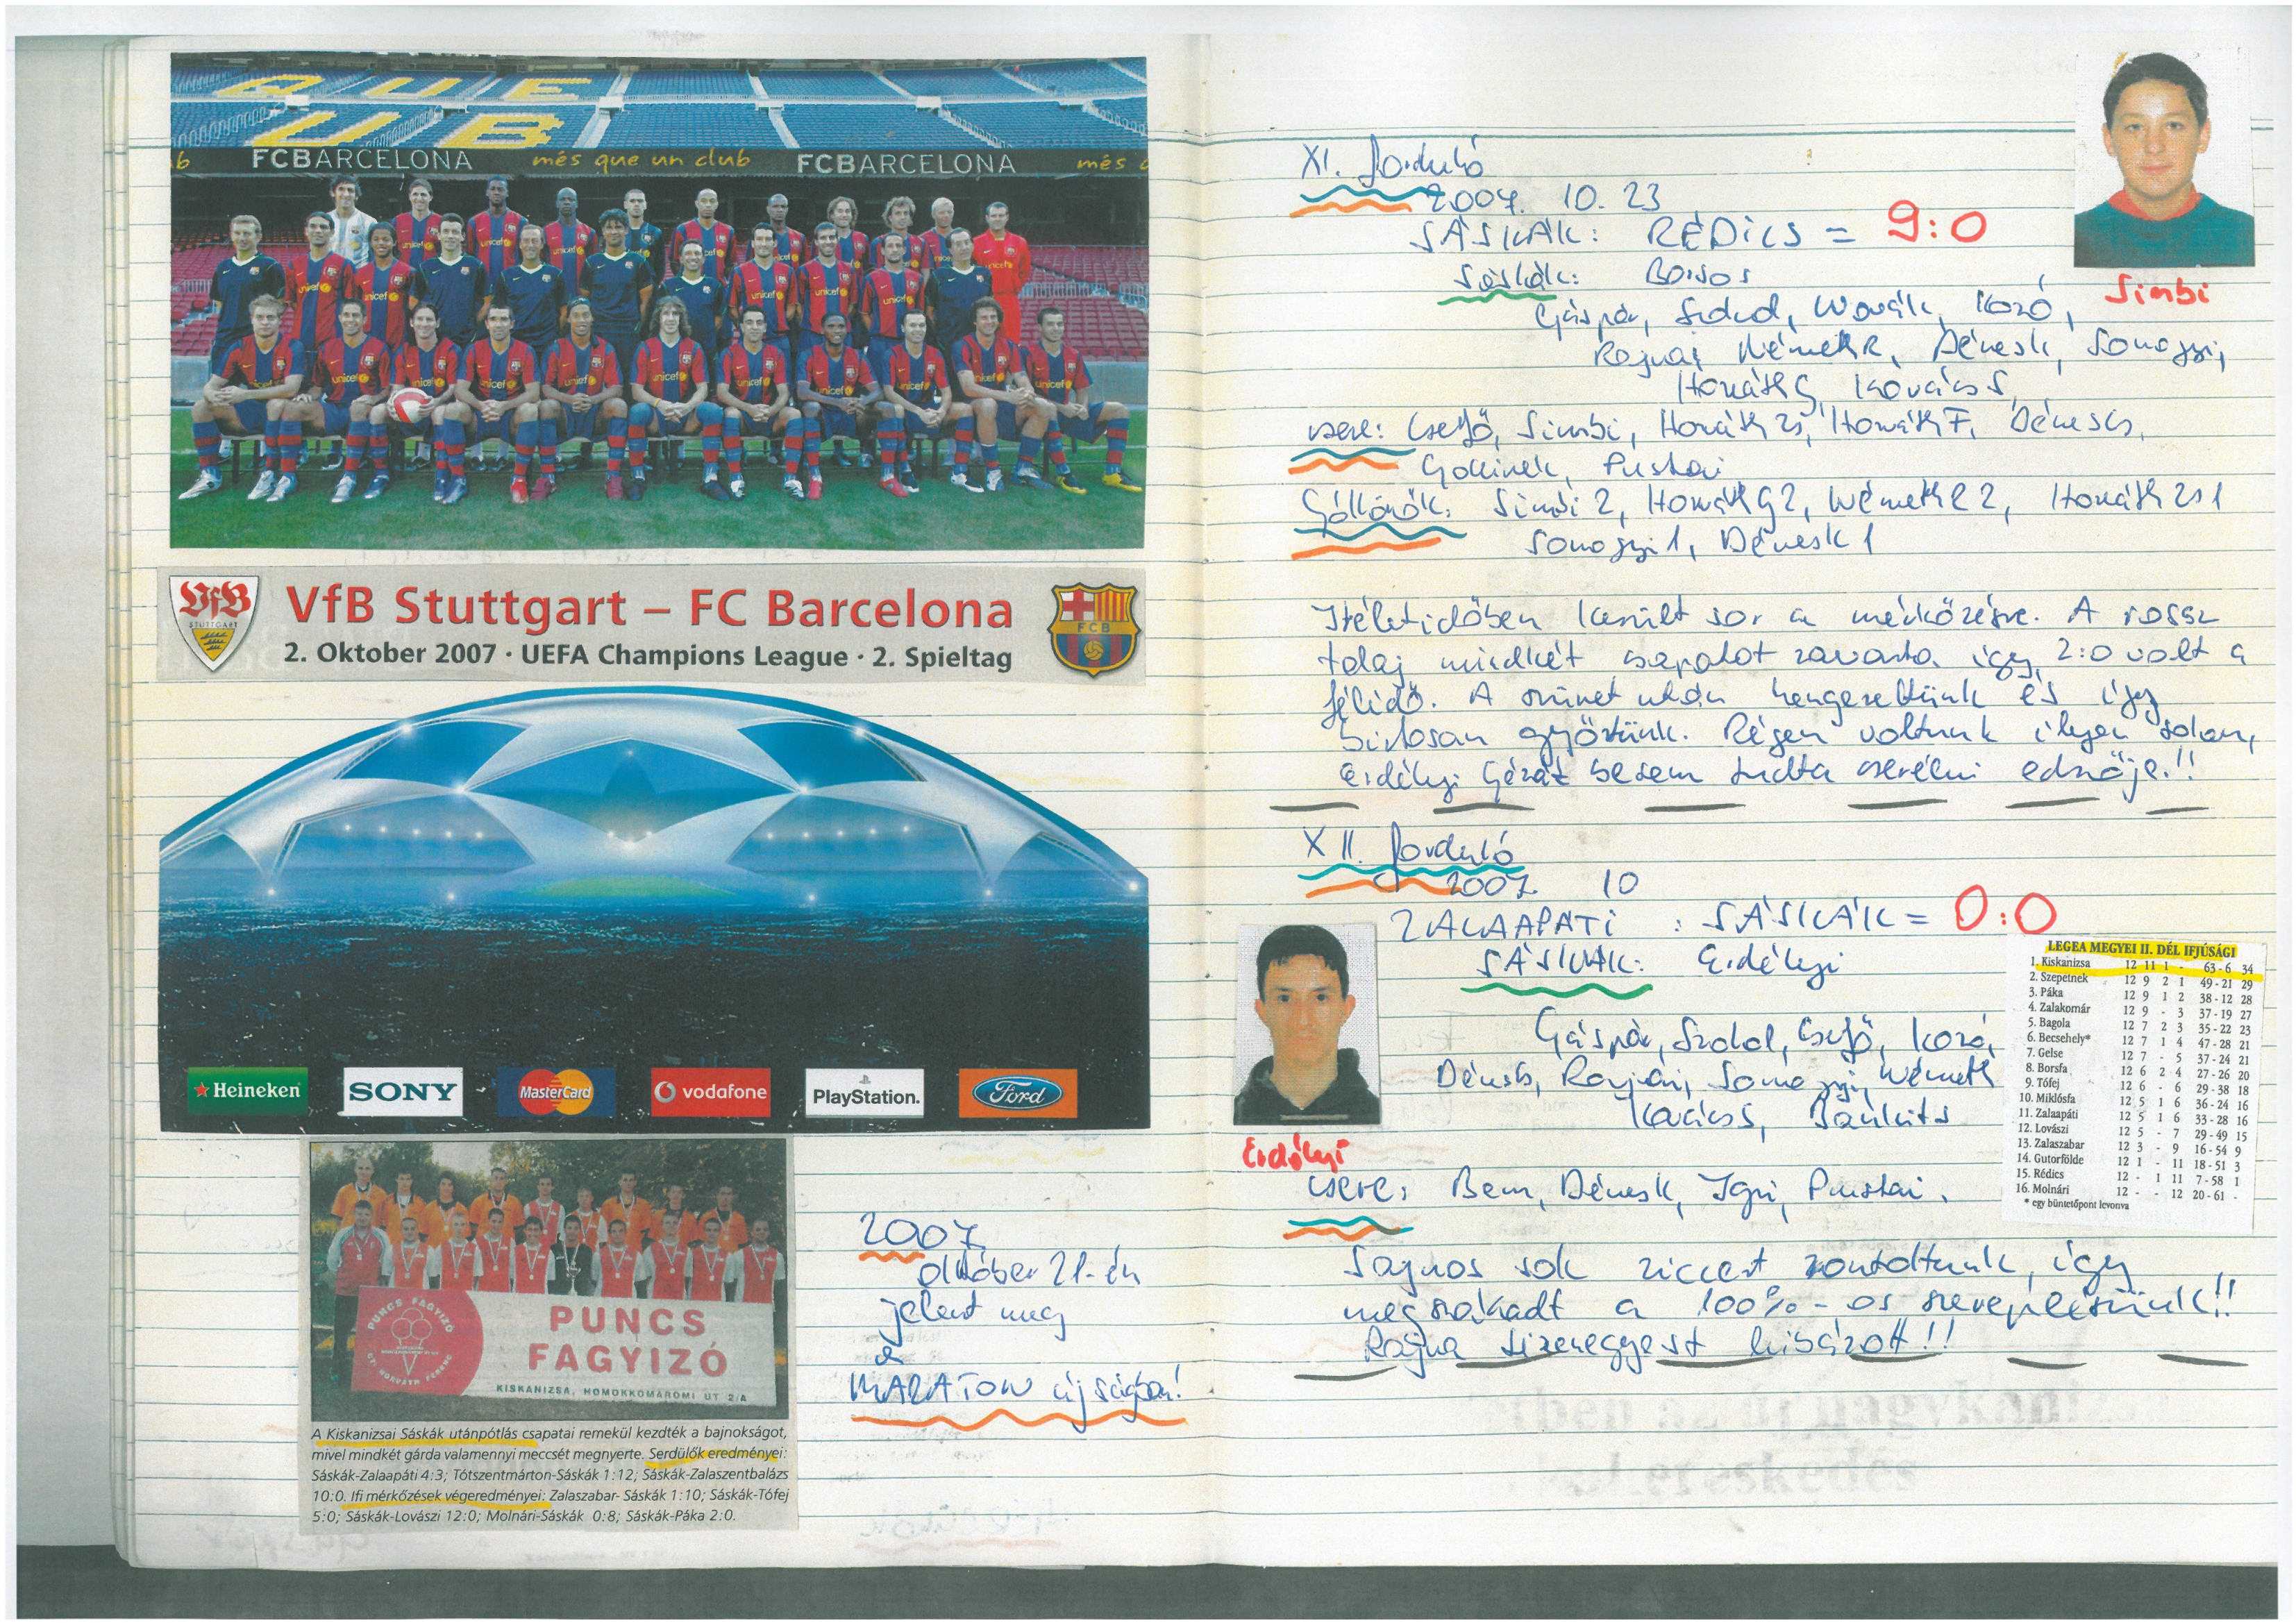 QUE
UB
b FCBARCELONA més que un club FCBARCELONA més
VfB Stuttgart – FC Barcelona
2. Oktober 2007 · UEFA Champions League · 2. Spieltag
VfB
STUTTGART
FCB
Heineken
SONY
MasterCard
vodafone
PlayStation.
Ford
PUNCS FAGYIZÓ
PUNCS
FAGYIZÓ
KISKANIZSA, HOMOKKOMÁROMI ÚT 2/A
A Kiskanizsai Sáskák utánpótlás csapatai remekül kezdték a bajnokságot,
mivel mindkét gárda valamennyi meccsét megnyerte. Serdülők eredményei:
Sáskák-Zalaapáti 4:3; Tótszentmárton-Sáskák 1:12; Sáskák-Zalaszentbalázs
10:0. Ifi mérkőzések végeredményei: Zalaszabar- Sáskák 1:10; Sáskák-Tófej
5:0; Sáskák-Lovászi 12:0; Molnári-Sáskák 0:8; Sáskák-Páka 2:0.
2007
október 21-én
jelent meg
a
MARATON újságban!
XI. forduló
2007. 10. 23
SÁSKÁK: RÉDICS = 9:0
Simbi
Sáskák: Borsos
Gáspár, Szdol, Novák, Kozó,
Rajnai, Németh R, Dénesk, Somogyi,
Horváth G, Kovács S,
csere: Csejő, Simbi, Horváth Zs, Horváth F, Dénes Cs,
Golinek, Pusztai
Góllövők: Simbi 2, Horváth G 2, Németh R 2, Horváth Zs 1
Somogyi 1, Dénesk 1
Itéletidőben került sor a mérkőzésre. A rossz
talaj mindkét csapatot zavarta, így 2:0 volt a
félidő. A szünet után hengereltünk és így
biztosan győztünk. Régen voltunk ilyen sokan,
Erdélyi Gézát be sem tudta cserélni edzője.!!
XII. forduló
2007. 10
ZALAAPÁTI : SÁSKÁK = 0:0
SÁSKÁK: Erdélyi
Gáspár, Szdol, Csejő, Kozó,
Dénes, Rajnai, Somogyi, Németh
Kovács S, Bánkits
Erdélyi
csere: Bem, Dénesk, Igri, Pusztai.
LEGEA MEGYEI II. DÉL IFJÚSÁGI
1. Kiskanizsa 12 11 1 - 63-6 34
2. Szepetnek 12 9 2 1 49-21 29
3. Páka 12 9 1 2 38-12 28
4. Zalakomár 12 9 - 3 37-19 27
5. Bagola 12 7 2 3 35-22 23
6. Becsehely* 12 7 1 4 47-28 21
7. Gelse 12 7 - 5 37-24 21
8. Borsfa 12 6 2 4 27-26 20
9. Tófej 12 6 - 6 29-38 18
10. Miklósfa 12 5 1 6 36-24 16
11. Zalaapáti 12 5 1 6 33-28 16
12. Lovászi 12 5 - 7 29-49 15
13. Zalaszabar 12 3 - 9 16-54 9
14. Gutorfölde 12 1 - 11 18-51 3
15. Rédics 12 - 1 11 7-58 1
16. Molnári 12 - - 12 20-61 -
* egy büntetőpont levonva
Sajnos sok ziccert rontottunk, így
megszakadt a 100%-os szereplésünk!!
Rajna tizenegyest hibázott!!